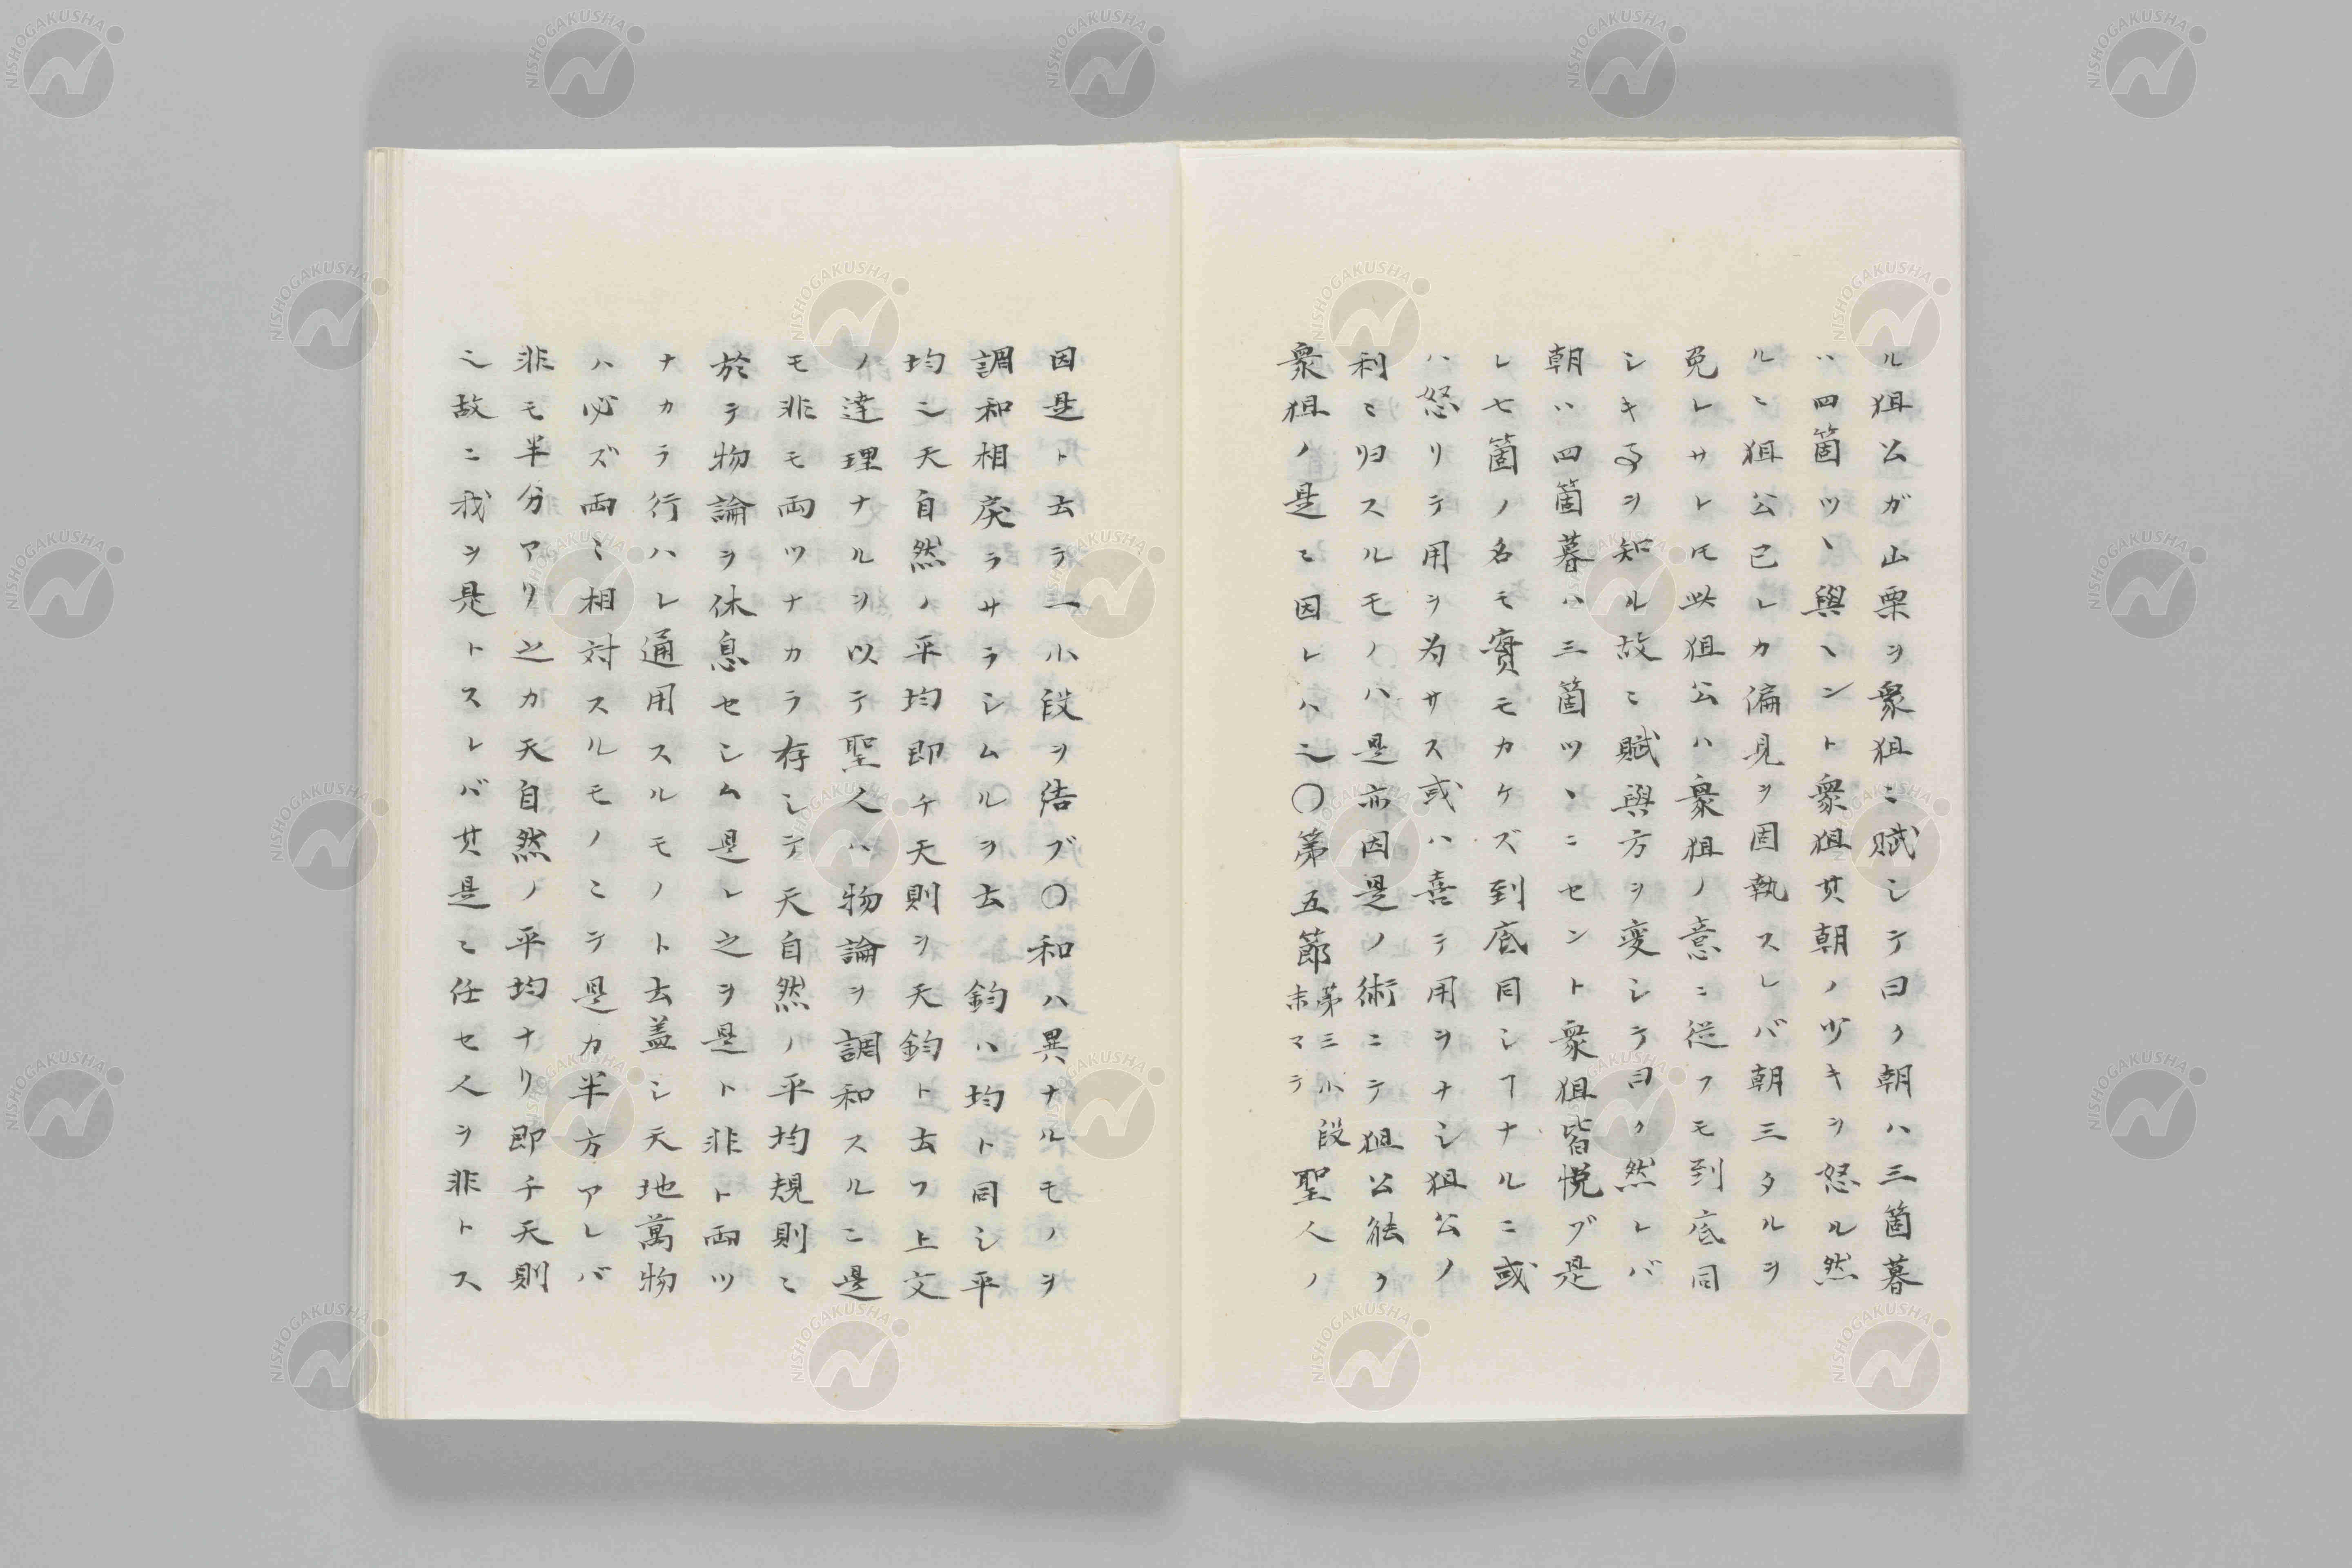 ル狙公ガ山栗ヲ衆狙ニ賦シテ曰ク朝ハ三箇暮
ハ四箇ツヽ與ヘントス衆狙其朝ノ少キヲ怒ル然
ルニ狙公已レカ偏見ヲ固執スレバ朝三タルヲ
免レサレ𪜈此狙公ハ衆狙ノ意ニ従フモ到底同
シキヿヲ知ル故ニ賦與方ヲ変シテ曰ク然レバ
朝ハ四箇暮ハ三箇ツヽニセント衆狙皆悦ブ是
レ七箇ノ名モ實モカケズ到底同シヿナルニ或
ハ怒リテ用ヲ為サス或ハ喜テ用ヲナシ狙公ノ
利ニ归スルモノハ是亦因是ノ術ニテ狙公能ク
衆狙ノ是ニ因レハ也〇第五節第三小段末マテ聖人ノ
因是ト去テ一小段ヲ結ブ〇和ハ異ナルモノヲ
調和相戻ラサラシムルヲ去鈞ハ均ト同シ平
均也天自然ノ平均即チ天則ヲ天鈞ト去フ上文
ノ達理ナルヲ以テ聖人ハ物論ヲ調和スルニ是
モ非モ両ツナカラ存シテ天自然ノ平均規則ニ
於テ物論ヲ休息セシム是レ之ヲ是ト非ト両ツ
ナカラ行ハレ通用スルモノト去盖シ天地萬物
ハ必ズ両ニ相対スルモノニテ是カ半方アレバ
非モ半分アリ之カ天自然ノ平均ナリ即チ天則
也故ニ我ヲ是トスレバ其是ニ任セ人ヲ非トス
NISHOGAKUSHA